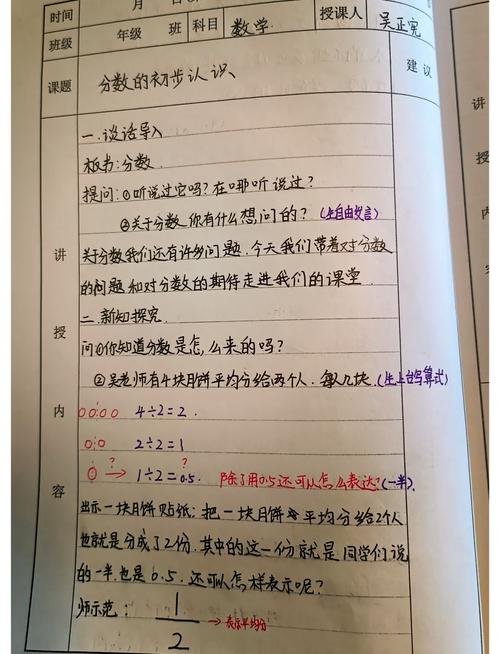 时间 月 授课人 吴正宪
班级 年级 班 科目 数学
课题 分数的初步认识、 建议
讲授内容
一.谈话导入
板书:分数
提问:①听说过它吗?在哪听说过?
②关于分数你有什么想问的?(生自由发言)
关于分数我们还有许多问题.今天我们带着对分数
的问题和对分数的期待走进我们的课堂
二.新知探究
问①你知道分数是怎么来的吗?
②吴老师有4块月饼平均分给两个人.每人几块.(生上台写算式)
4÷2=2.
2÷2=1
? ?
→ 1÷2=0.5. 除了用0.5还可以怎么表达?(一半).
出示一块月饼贴纸:把一块月饼平均分给2个人
也就是分成了2份.其中的这一份就是同学们说
的一半.也是0.5.还可以怎样表示呢?
师示范: 1
2 → 表示平均分
讲
授